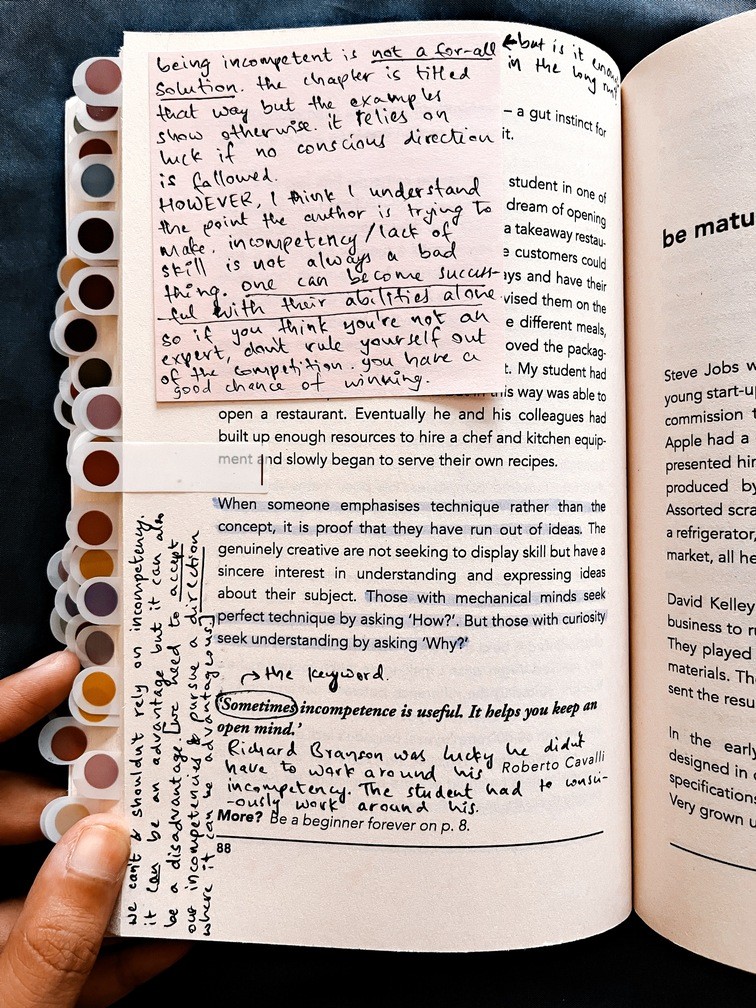 being incompetent is not a for-all
solution. the chapter is titled
that way but the examples
show otherwise. it relies on
luck if no conscious direction
is followed.
HOWEVER, I think I understand
the point the author is trying to
make. incompetency/lack of
skill is not always a bad
thing. one can become success-
-ful with their abilities alone.
so if you think you're not an
expert, don't rule yourself out
of the competition. you have a
good chance of winning.
←but is it
in the long run?
– a gut instinct for
it.
student in one of
dream of opening
a takeaway restau-
customers could
ays and have their
vised them on the
e different meals,
oved the packag-
t. My student had
this way was able to
open a restaurant. Eventually he and his colleagues had
built up enough resources to hire a chef and kitchen equip-
ment and slowly began to serve their own recipes.
When someone emphasises technique rather than the
concept, it is proof that they have run out of ideas. The
genuinely creative are not seeking to display skill but have a
sincere interest in understanding and expressing ideas
about their subject. Those with mechanical minds seek
perfect technique by asking 'How?'. But those with curiosity
seek understanding by asking 'Why?'
→ the keyword.
'Sometimes incompetence is useful. It helps you keep an
open mind.'
Roberto Cavalli
Richard Branson was lucky he didn't
have to work around his
incompetency. The student had to consci-
-ously work around his.
More? Be a beginner forever on p. 8.
88
we can't & shouldn't rely on incompetency.
it can be an advantage but it can also
be a disadvantage. [we need to accept
our incompetencies & pursue a direction
where it can be advantageous.]
be matu
Steve Jobs w
young start-u
commission t
Apple had a
presented hi
produced by
Assorted scra
a refrigerator,
market, all he
David Kelley
business to
They played
materials. Th
sent the resu
In the early
designed in
specifications
Very grown u